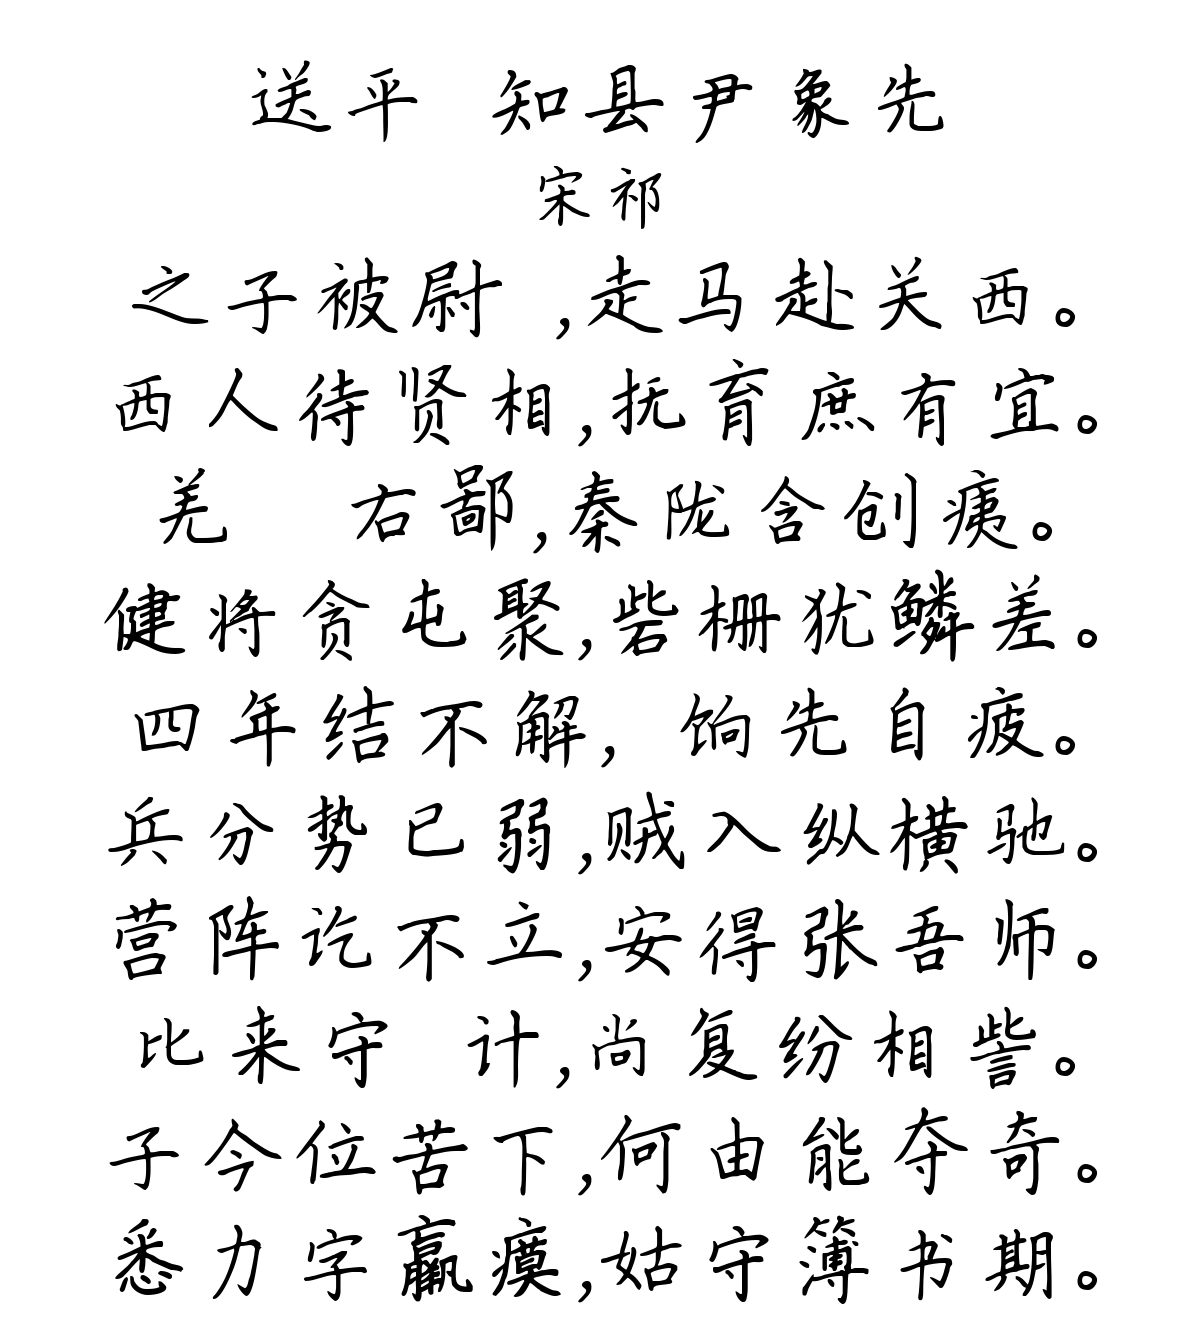 送平 知县尹象先
宋祁
之子被尉 ,走马赴关西。
西人待贤相,抚育庶有宜。
羌  右鄙,秦陇含创痍。
健将贪屯聚,砦栅犹鳞差。
四年结不解, 饷先自疲。
兵分势已弱,贼入纵横驰。
营阵讫不立,安得张吾师。
比来守 计,尚复纷相訾。
子今位苦下,何由能夺奇。
悉力字羸瘼,姑守簿书期。